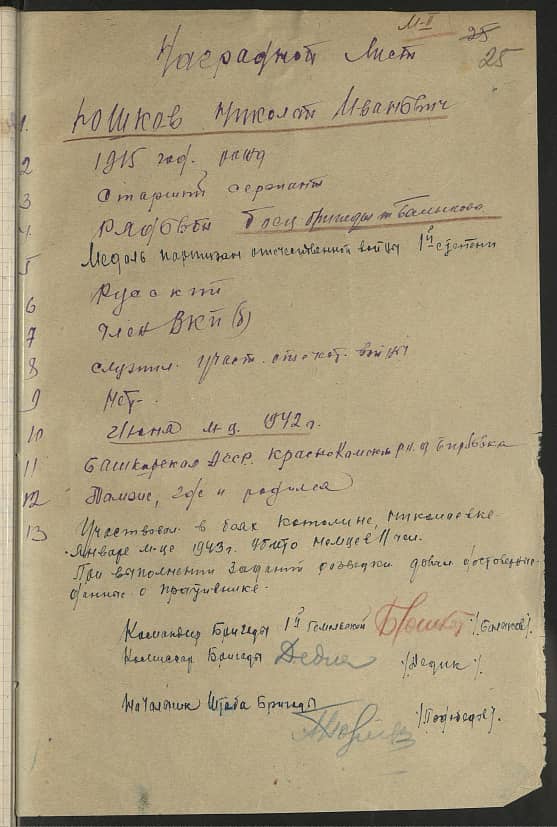 М-II
25
25
Наградной лист
1. Юшков Николай Иванович
2 1915 год. рожд
3 Старший сержант
4 Рядовой боец бригады т Балыкова
5 Медаль партизан отечественной войны 1й степени
6 Русский
7 Член ВКП(б)
8 служил. участ. отечест. войны
9 Нет-
10 Июня м-ц. 1942 г.
11 Башкирская АССР. Краснокамский рн. д
12 Тамже, где и родился
13 Участвовал в боях Николаевке
Январе м-це 1943 г. убито немцев 11 чел.
При выполнении заданий разведки давал достоверные
данные о противнике.
Командир Бригады 1й Гомельской /Балыков/
Комиссар Бригады Дедик /Дедик/.
Начальник Штаба Бригады